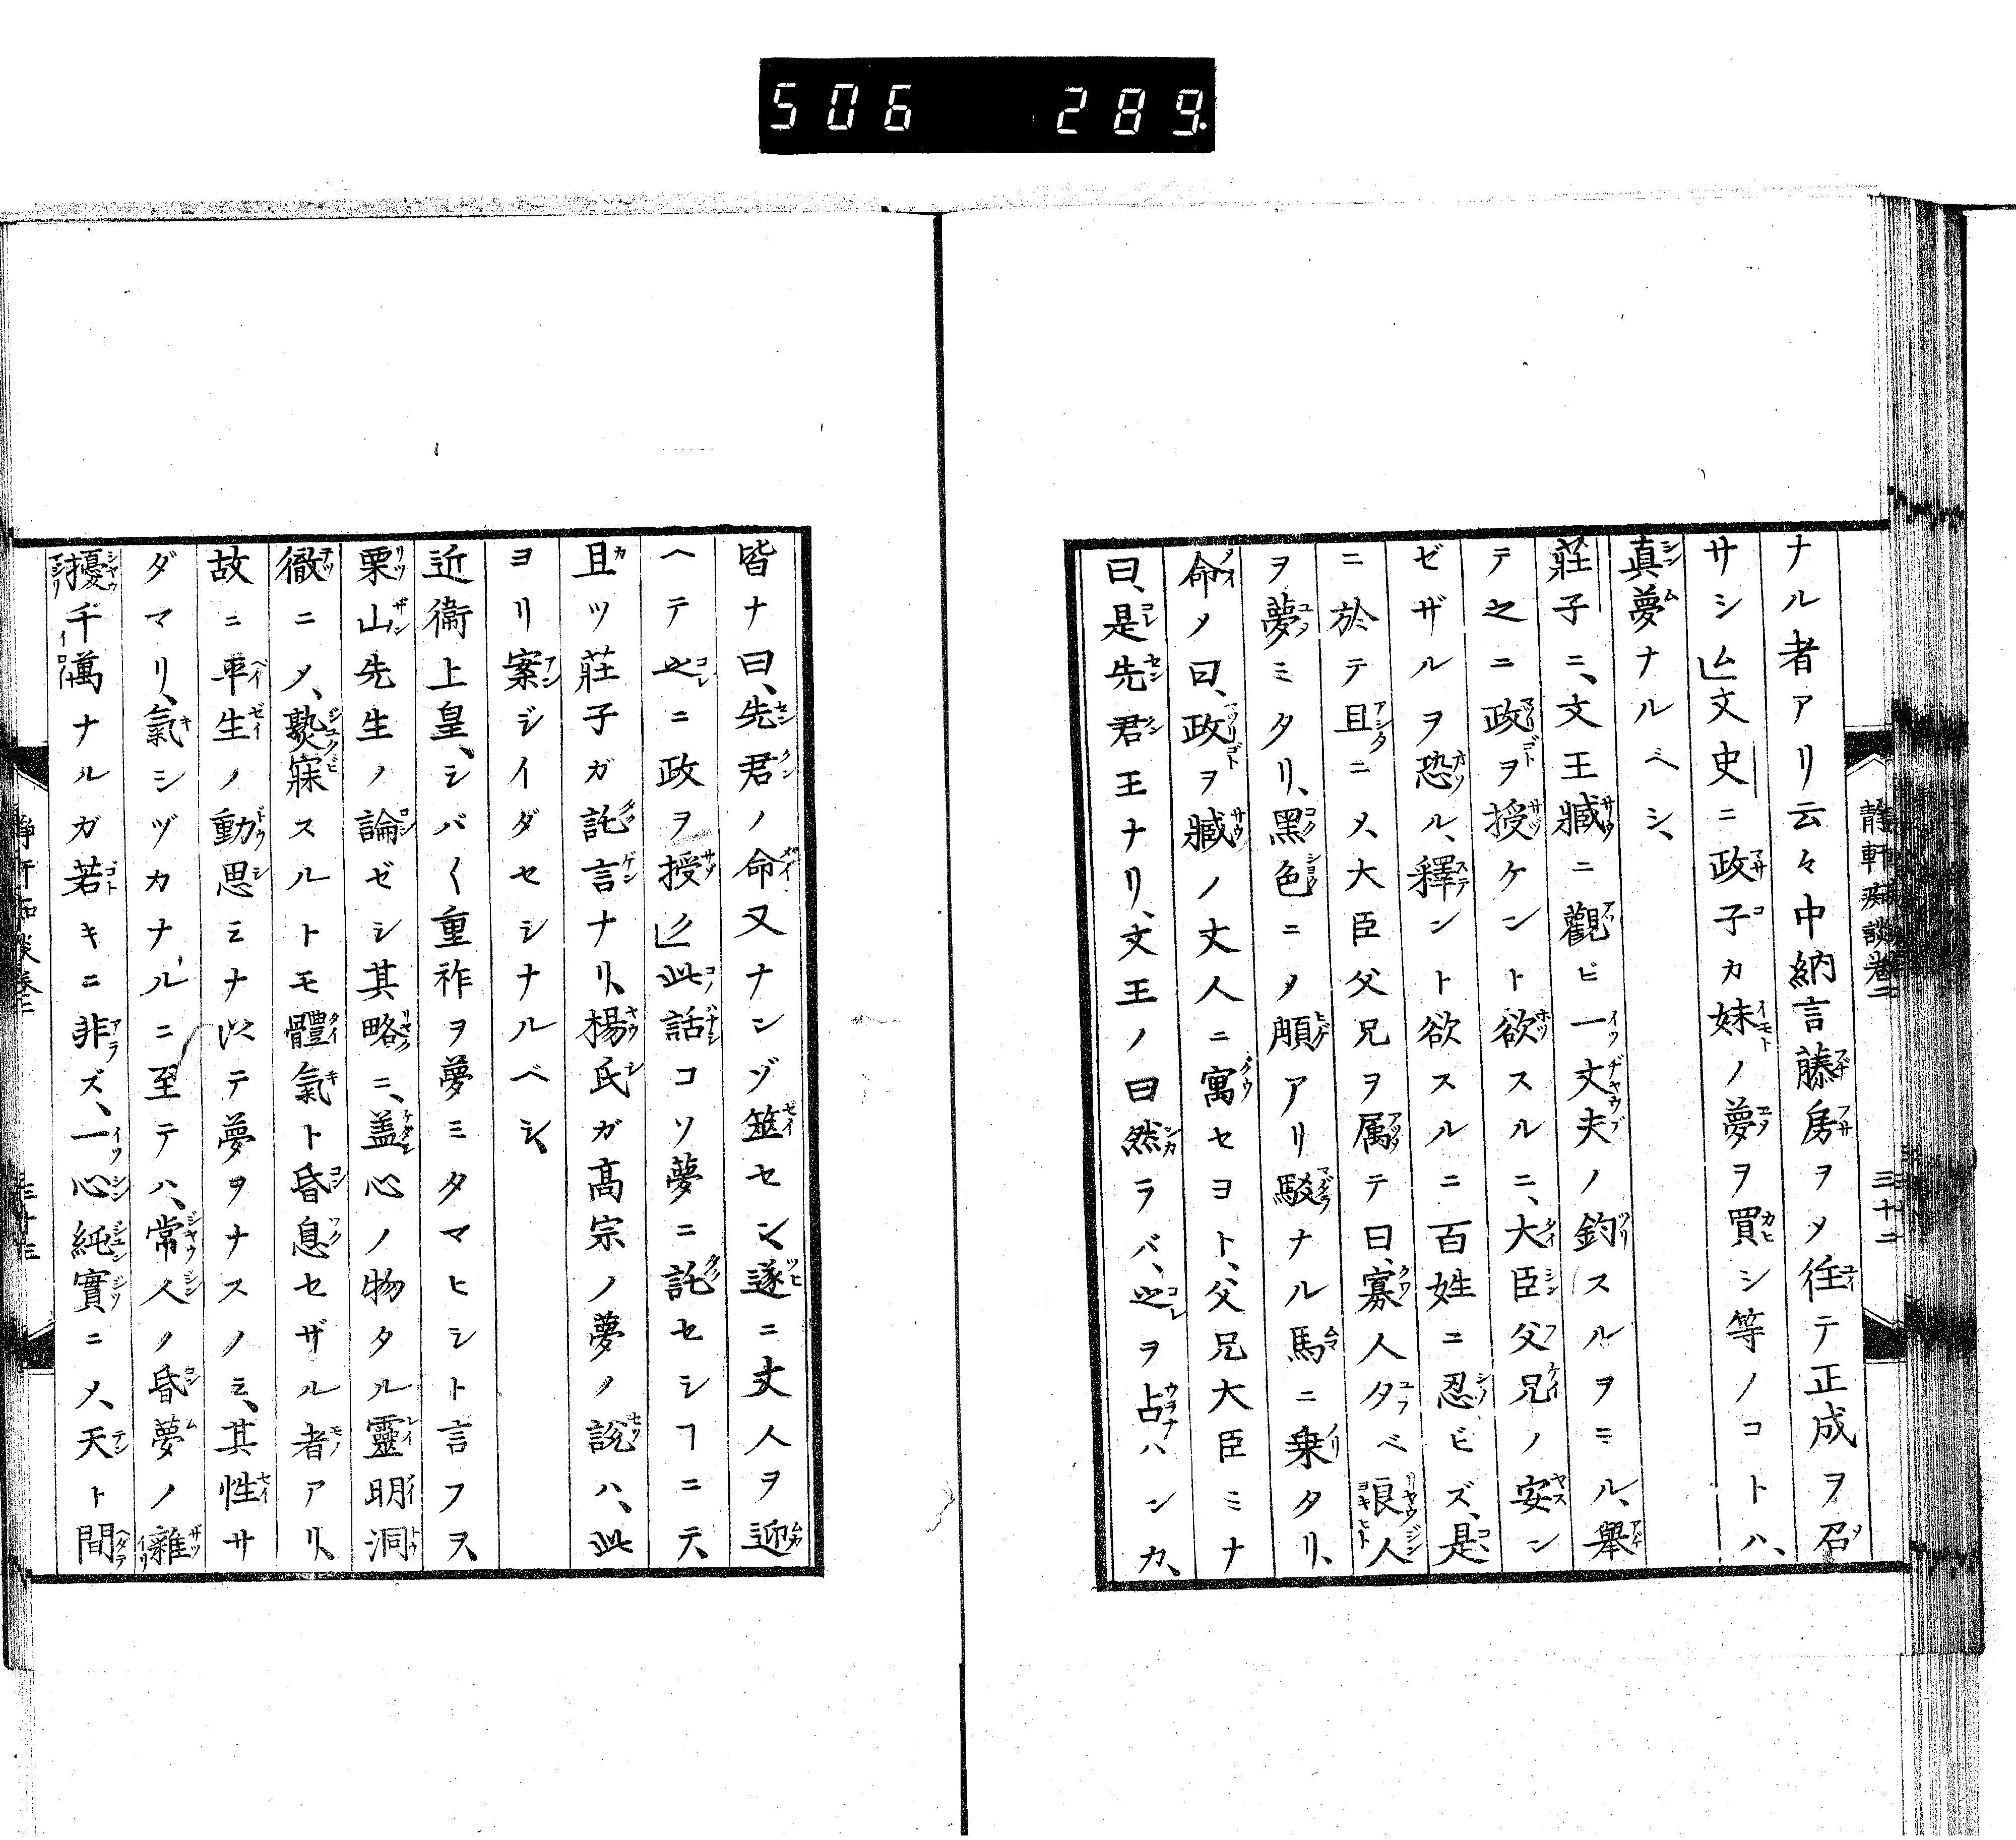 506 289
靜軒痴談卷二
三十二
ナル者アリ云々中納言藤房ヲメ徃テ正成ヲ召
サシム文史ニ政子カ妹ノ夢ヲ買シ等ノコトハ、
真夢ナルベシ、
莊子ニ、文王臧ニ觀ビ一丈夫ノ釣スルヲミル、舉
テ之ニ政ヲ授ケント欲スルニ、大臣父兄ノ安ン
ゼザルヲ恐ル、釋ント欲スルニ百姓ニ忍ビズ、是
ニ於テ且ニメ、大臣父兄ヲ属テ曰、寡人夕ベ良人
ヲ夢ミタリ、黑色ニメ𩑺アリ駁ナル馬ニ乗タリ、
命メ曰、政ヲ臧ノ丈人ニ寓セヨト、父兄大臣ミナ
曰、是先君王ナリ、文王ノ曰然ラバ、之ヲ占ハンカ、
皆ナ曰、先君ノ命又ナンヅ筮セン、遂ニ丈人ヲ迎
ヘテ之ニ政ヲ授ク此話コソ夢ニ託セシヿニテ、
且ツ莊子ガ託言ナリ、楊氏ガ髙宗ノ夢ノ說ハ、此
ヨリ案ジイダセシナルベシ、
近衞上皇、シバ〱重祚ヲ夢ミタマヒシト言フヲ、
栗山先生ノ論ゼシ其略ニ、盖心ノ物タル靈明洞
徹ニメ、熟寐スルトモ體氣ト昏息セザル者アリ、
故ニ平生ノ動思ミナ以テ夢ヲナスノミ、其性サ
ダマリ、氣シヅカナルニ至テハ、常人ノ昏夢ノ雜
擾千萬ナルガ若キニ非ズ、一心純實ニメ、天ト間